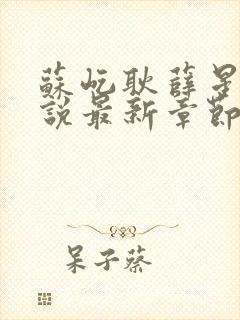 蘇屹耿薛星
說最新章節
呆子蔡